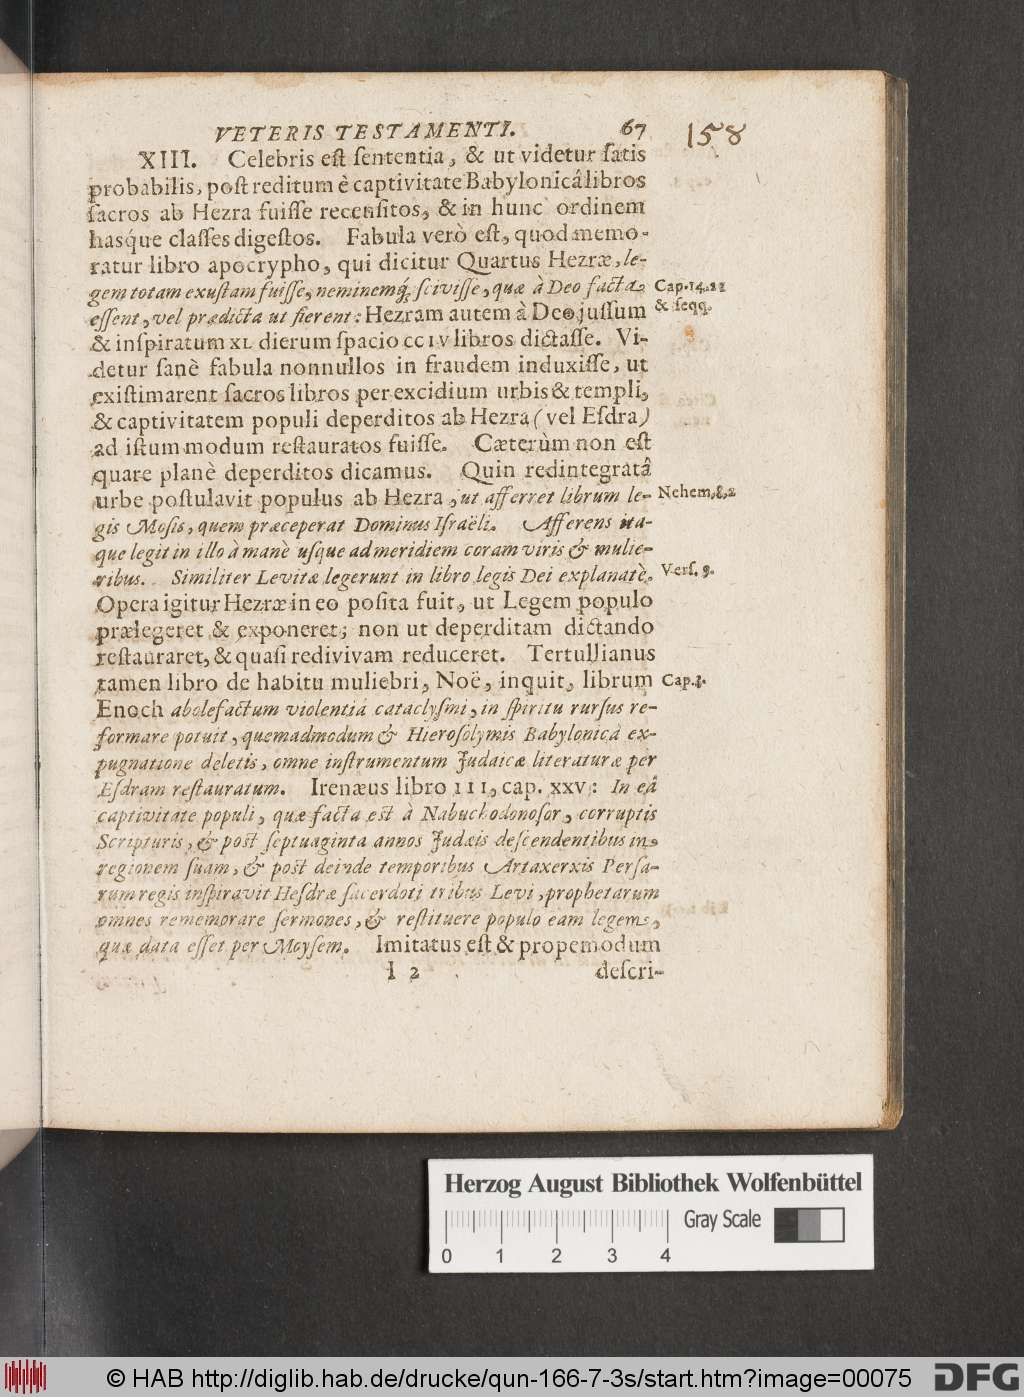 VETERIS TESTAMENTI. 67
158
XIII. Celebris eſt ſententia, & ut videtur ſatis
probabilis, poſt reditum è captivitate Babylonicâ libros
ſacros ab Hezra fuiſſe recenſitos, & in hunc ordinem
hasq́ue claſſes digeſtos. Fabula verò eſt, quod memo-
ratur libro apocrypho, qui dicitur Quartus Hezræ, le-
gem totam exuſtam fuiſſe, neminemq́; ſciviſſe, quæ à Deo facta
Cap. 14. 21
eſſent, vel prædicta ut fierent: Hezram autem à Deo juſſum
& ſeqq.
& inſpiratum XL dierum ſpacio CCIV libros dictaſſe. Vi-
detur ſanè fabula nonnullos in fraudem induxiſſe, ut
exiſtimarent ſacros libros per excidium urbis & templi,
& captivitatem populi deperditos ab Hezra (vel Eſdra)
ad iſtum modum reſtauratos fuiſſe. Cæterùm non eſt
quare planè deperditos dicamus. Quin redintegratâ
urbe poſtulavit populus ab Hezra, ut afferret librum le-
Nehem. 8. 2
gis Moſis, quem præceperat Dominus Iſraëli. Afferens ita-
que legit in illo à manè uſque ad meridiem coram viris & mulie-
ribus. Similiter Levitæ legerunt in libro legis Dei explanatè.
Verſ. 9.
Opera igitur Hezræ in eo poſita fuit, ut Legem populo
prælegeret & exponeret; non ut deperditam dictando
reſtauraret, & quaſi redivivam reduceret. Tertullianus
tamen libro de habitu muliebri, Noë, inquit, librum
Cap. 3.
Enoch abolefactum violentiâ cataclyſmi, in ſpiritu rurſus re-
formare potuit, quemadmodum & Hieroſolymis Babylonicâ ex-
pugnatione deletis, omne inſtrumentum Judaicæ literaturæ per
Eſdram reſtauratum. Irenæus libro III, cap. XXV: In eâ
captivitate populi, quæ facta eſt à Nabuchodonoſor, corruptis
Scripturis, & poſt ſeptuaginta annos Judæis deſcendentibus in
regionem ſuam, & poſt deinde temporibus Artaxerxis Perſa-
rum regis inſpiravit Heſdræ ſacerdoti tribus Levi, prophetarum
omnes rememorare ſermones, & reſtituere populo eam legem,
quæ data eſſet per Moyſem. Imitatus eſt & propemodum
I 2 deſcri-
Herzog August Bibliothek Wolfenbüttel
Gray Scale
0 1 2 3 4
© HAB http://diglib.hab.de/drucke/qun-166-7-3s/start.htm?image=00075
DFG